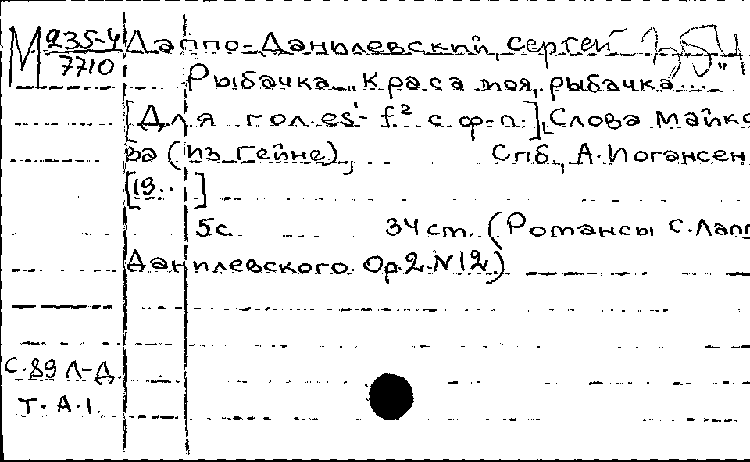 М 235-4 Лаппо-Данилевский, Сергей
7710
Рыбачка. „Краса моя, рыбачка..."
[Для гол. es¹- f² с ф-п.]. Слова Майко
ва (из Гейне),   Спб., А. Иогансен
[19..]
5 с.   34 ст. (Романсы С. Лапп
Данилевского. Op. 2. N 12)
С. 89 Л-Д
Т. А. 1.